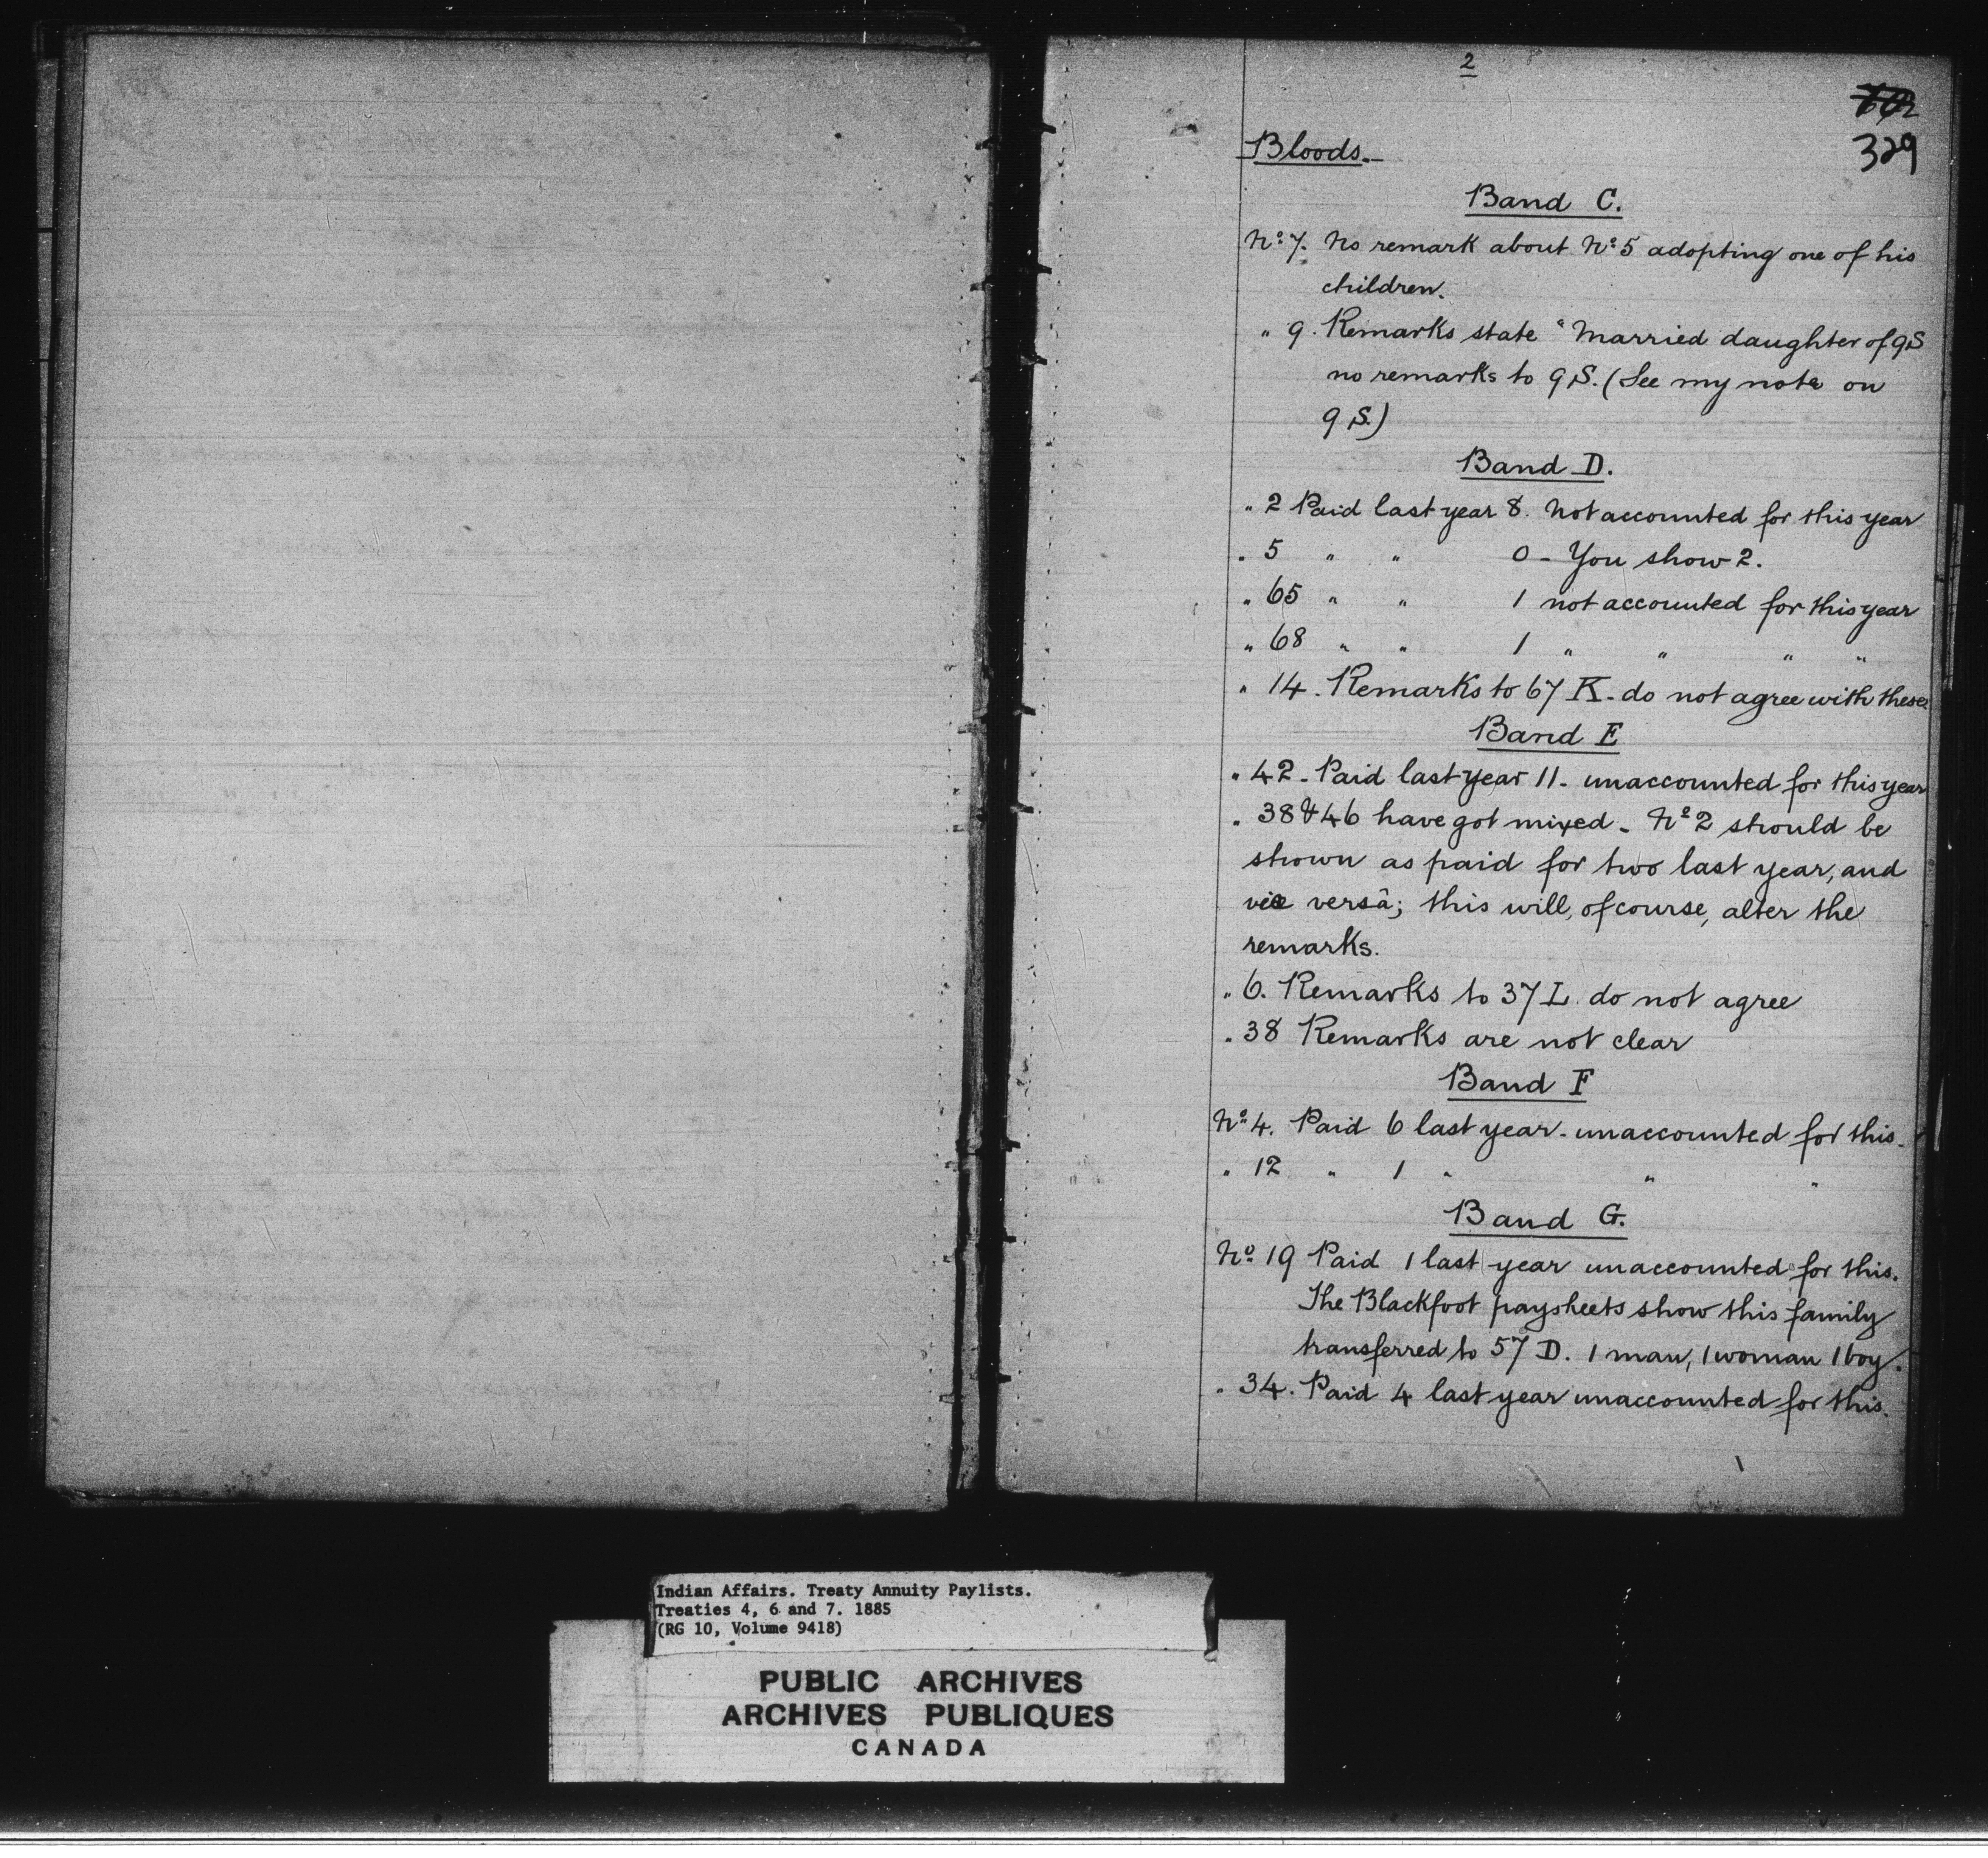 2
329
Bloods.-
Band C.
No. 7. No remark about No. 5 adopting one of his
children.
" 9. Remarks state "Married daughter of 9 S
no remarks to 9 S. (See my note on
9 S.)
Band D.
" 2 Paid last year 8. Not accounted for this year
" 5 " " 0 - You show 2.
" 65 " " 1 not accounted for this year
" 68 " " 1 " " " "
" 14. Remarks to 67 K - do not agree with these
Band E
" 42 - Paid last year 11 - unaccounted for this year
" 38 & 46 have got mixed - No. 2 should be
shown as paid for two last year, and
vice versâ; this will, of course, alter the
remarks.
" 6. Remarks to 37 L. do not agree
" 38 Remarks are not clear
Band F
No. 4. Paid 6 last year - unaccounted for this.
" 12 " 1 " " "
Band G.
No. 19 Paid 1 last year unaccounted for this.
The Blackfoot paysheets show this family
transferred to 57 D. 1 man, 1 woman 1 boy.
" 34. Paid 4 last year unaccounted for this.
Indian Affairs. Treaty Annuity Paylists.
Treaties 4, 6 and 7. 1885
(RG 10, Volume 9418)
PUBLIC ARCHIVES
ARCHIVES PUBLIQUES
CANADA